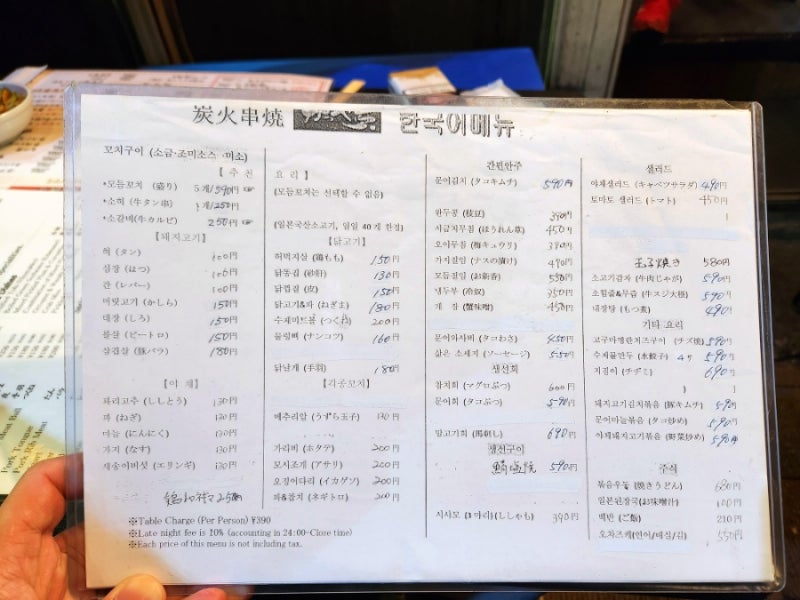 炭火串焼
한국어메뉴
꼬치구이 (소금·조미소스·미소)
[추천]
•모듬꼬치 (盛り) 5개/590円
•소혀 (牛タン串) 1개/250円
•소갈비(牛カルビ) 250円
[돼지고기]
혀 (タン) 100円
심장 (はつ) 100円
간 (レバー) 100円
머릿고기 (かしら) 150円
대장 (しろ) 150円
볼살 (ピートロ) 150円
삼겹살 (豚バラ) 180円
[야 채]
꽈리고추 (ししとう) 130円
파 (ねぎ) 130円
마늘 (にんにく) 130円
가지 (なす) 130円
새송이버섯 (エリンギ) 130円
※Table Charge (Per Person) ¥390
※Late night fee is 10% (accounting in 24:00-Close time)
※Each price of this menu is not including tax.
요 리]
(모듬꼬치는 선택할 수 없음)
(일본국산소고기, 일일 40개 한정)
[닭고기]
허벅지살 (鶏もも) 150円
닭똥집 (砂肝) 130円
닭껍질 (皮) 150円
닭고기&파 (ねぎま) 180円
수제미트볼 (つくね) 200円
물렁뼈 (ナンコツ) 160円
닭날개 (手羽) 180円
[각종꼬치]
메추리알 (うずら玉子) 130円
가리비 (ホタテ) 200円
모시조개 (アサリ) 200円
오징어다리 (イカゲソ) 200円
파&참치 (ネギトロ) 200円
간편안주
문어김치 (タコキムチ) 590円
완두콩 (枝豆) 390円
시금치무침 (ほうれん草) 450円
오이무침 (梅キュウリ) 380円
가지절임 (ナスの漬け) 490円
모듬절임 (お新香) 550円
냉두부 (冷奴) 350円
게 장 (蟹味噌) 450円
문어와사비 (タコわさ) 450円
삶은 소세지 (ソーセージ) 550円
생선회
참치회 (マグロぶつ) 600円
문어회 (タコぶつ) 590円
말고기회 (馬刺し) 690円
생선구이
590円
시사모 (3마리)(ししゃも) 390円
샐러드
야채샐러드 (キャベツサラダ) 490円
토마토 샐러드 (トマト) 450円
玉子焼き 580円
소고기감자 (牛肉じゃが) 590円
소힘줄&무조림 (牛スジ大根) 590円
내장탕 (もつ煮) 490円
기타 요리
고구마맹란치즈구이 (チズ焼) 590円
수제물만두 (水餃子) 4ヶ 590円
지짐이 (チヂミ) 690円
돼지고기김치볶음 (豚キムチ) 590円
문어마늘볶음 (タコ炒め) 590円
야채돼지고기볶음 (野菜炒め) 590円
주식
볶음우동 (焼きうどん) 680円
일본된장국(お味噌汁) 100円
백반 (ご飯) 210円
오차즈케(연어/매실/김) 550円